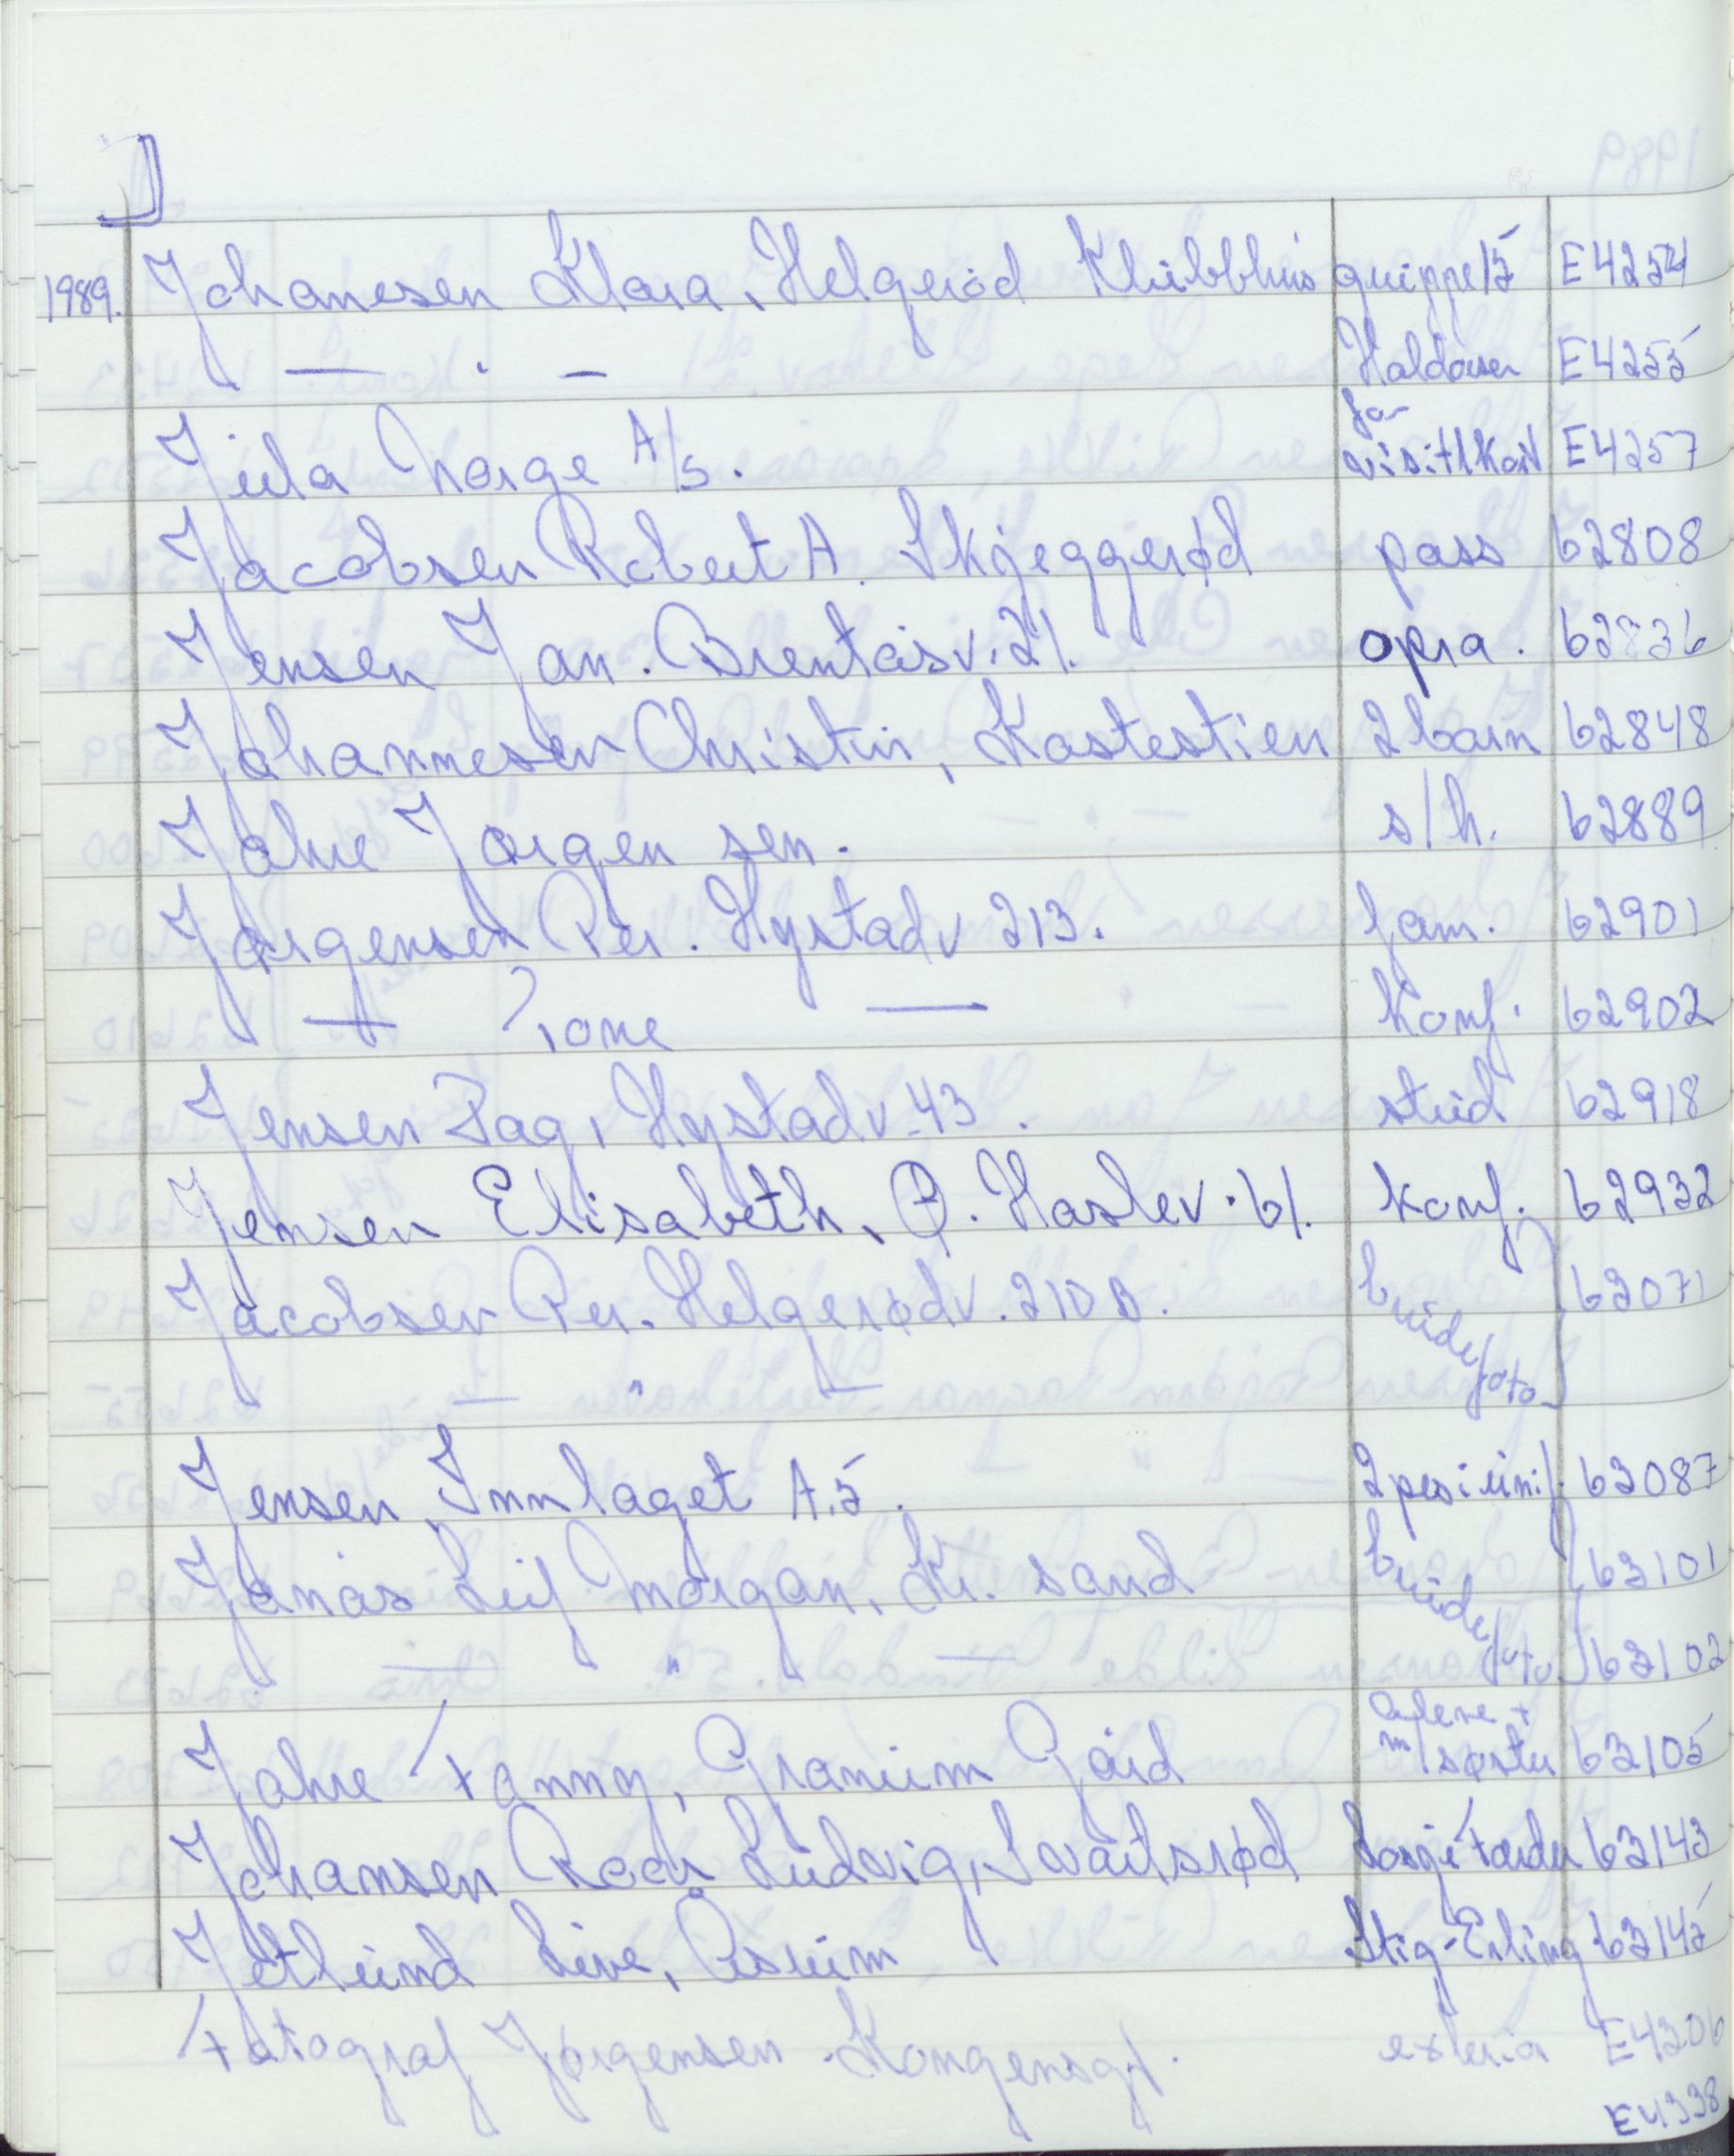 J
1989. Johanesen Klara, Helgerød Klubbhus gruppe 15 E4254
— " — Haldorsen E4255
Jula Norge A/S. for visittkort E4257
Jacobsen Robert A. Skjeggerød pass 62808
Jensen Jan. Brentåsv. 21. opra. 62836
Johannesen Christin, Kastestien 2 barn 62848
Jahre Jørgen sen. s/h. 62889
Jørgensen Per. Hystadv 213. fam. 62901
— Tone — konf. 62902
Jensen Dag, Hystadv. 43. stud 62918
Jensen Elisabeth, Ø. Haslev. 61. konf. 62932
Jacobsen Per. Helgerødv. 210 B. brude 63071
— " — foto
Jensen Innlaget A.S. 2 pers i unif. 63087
Jonås Leif Morgan, Kr. sand brude 63101
— " — foto 63102
Jahre Fanny, Granum Gård alene + m/søster 63105
Johansen Roar Ludvig, Svartsrød 63143
Jetlund Live, Åsrum Stig-Erling 63145
Fotograf Jørgensen. Kongensgt. E4306
E4338